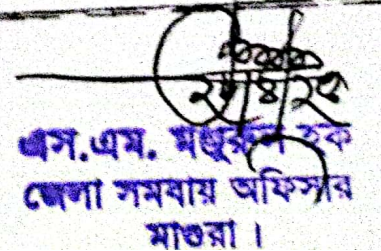 ২৭/৪/২৫
এস.এম. মঞ্জুরুল হক
জেলা সমবায় অফিসার
মাগুরা।